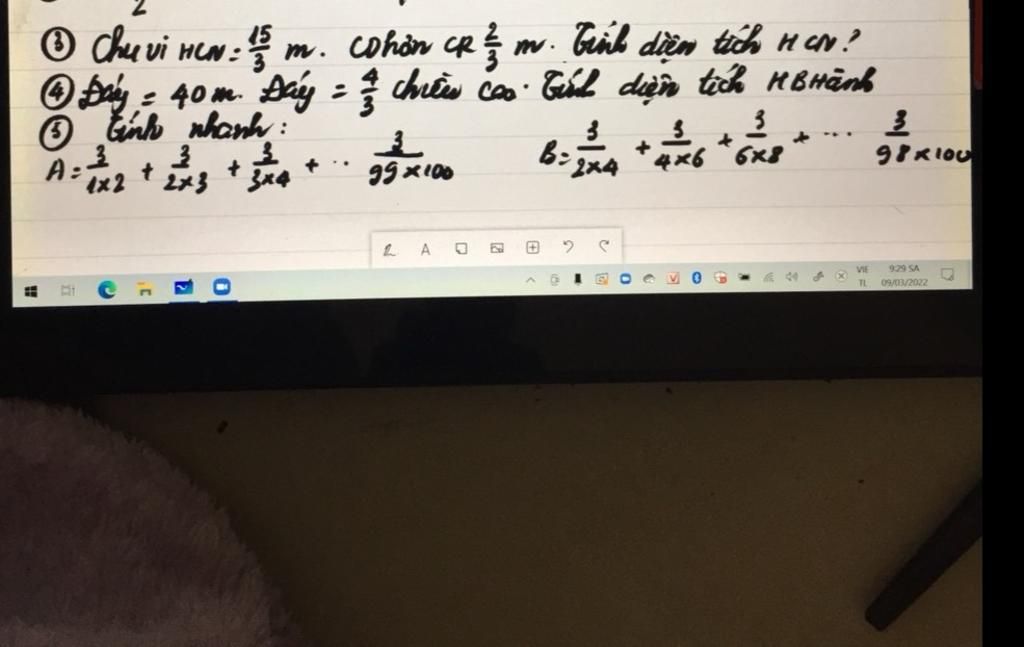 2
③ Chu vi HCN = 15/3 m. CD hơn CR 2/3 m. Tính diện tích HCN?
④ Đáy = 40 m. Đáy = 4/3 chiều cao. Tính diện tích HBHành
⑤ Tính nhanh:
A = 3/1x2 + 3/2x3 + 3/3x4 + .. 3/99x100 B = 3/2x4 + 3/4x6 + 3/6x8 + ... 3/98x100
A
VIE 9:29 SA
TL 09/03/2022